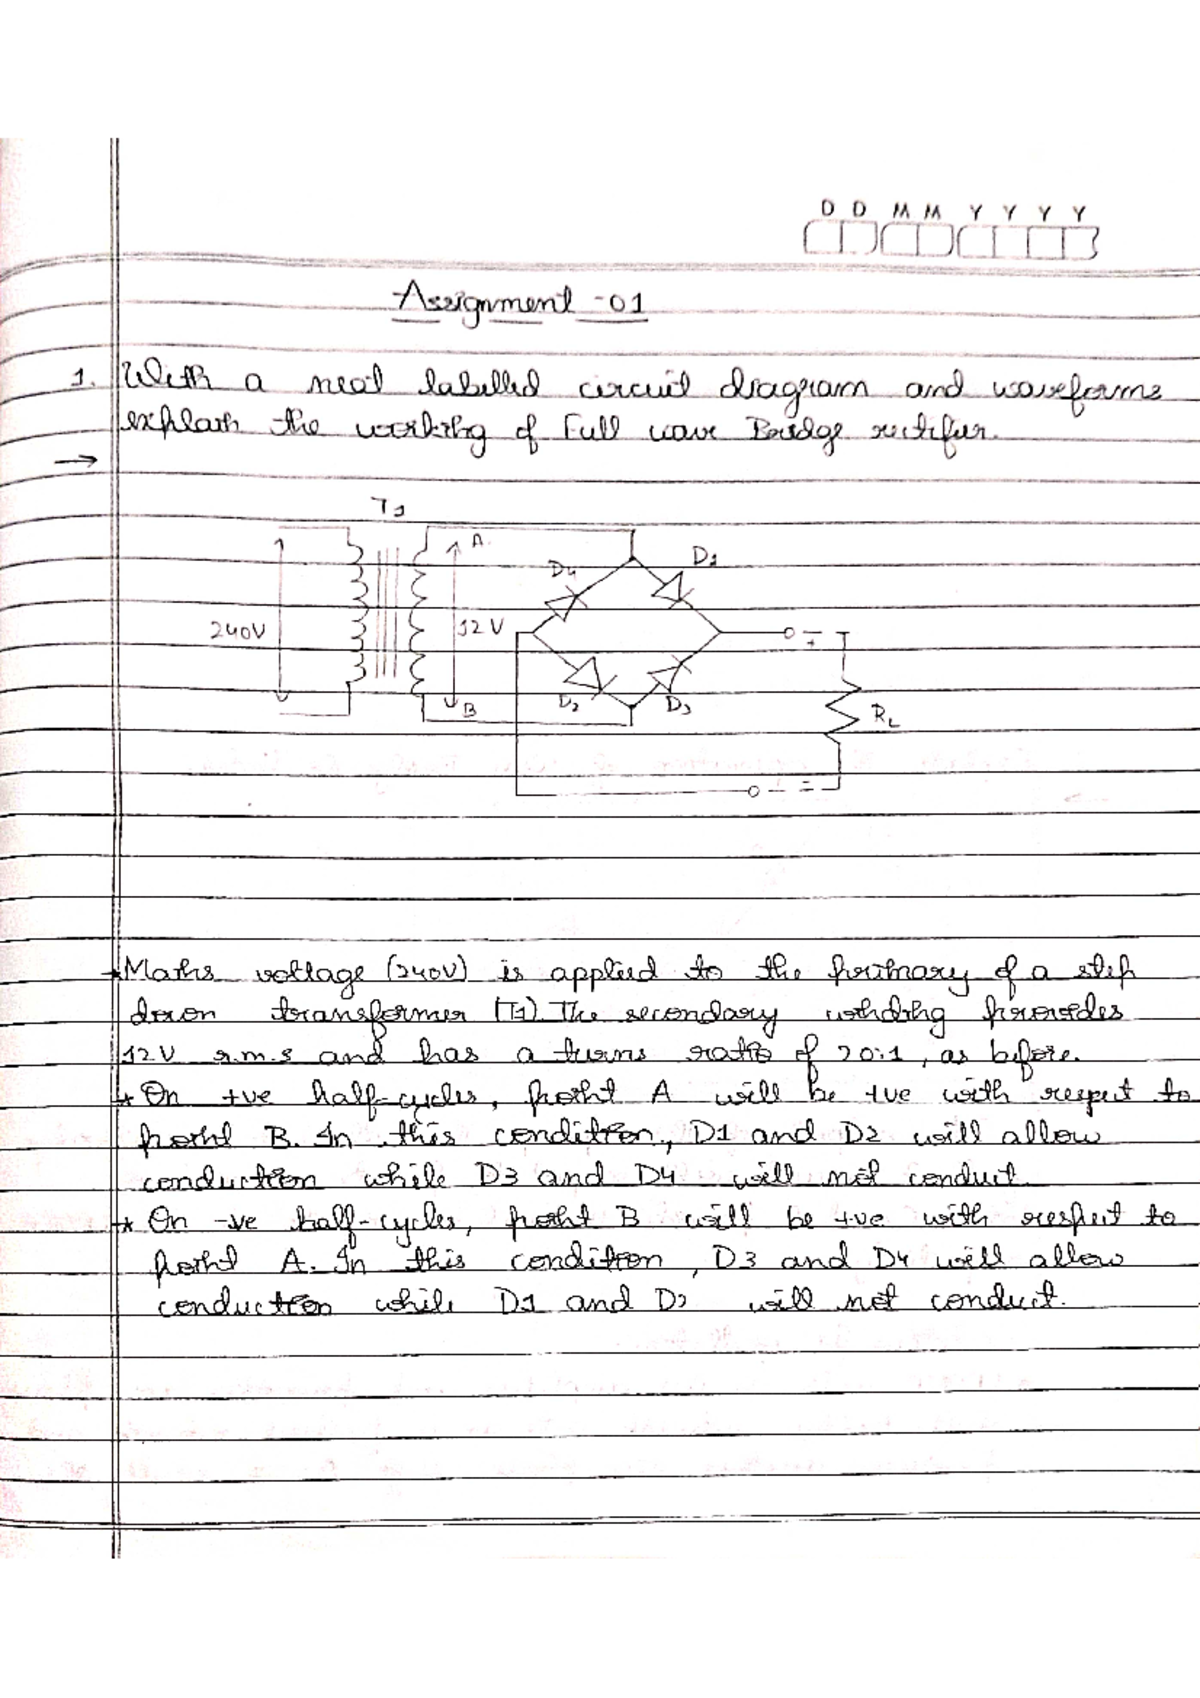 D D M M Y Y Y Y
Assignment -01
1. With a neat labelled circuit diagram and waveforms
explain the working of Full wave Bridge rectifier.
→
T1
A
D4
D1
240V
12 V
+
B
D2
D3
RL
-
* Mains voltage (240V) is applied to the primary of a step
down transformer (T1). The secondary winding provides
12V r.m.s and has a turns ratio of 20:1, as before.
* On +ve half-cycles, point A will be +ve with respect to
point B. In this condition, D1 and D2 will allow
conduction while D3 and D4 will not conduct.
* On -ve half-cycles, point B will be +ve with respect to
point A. In this condition, D3 and D4 will allow
conduction while D1 and D2 will not conduct.